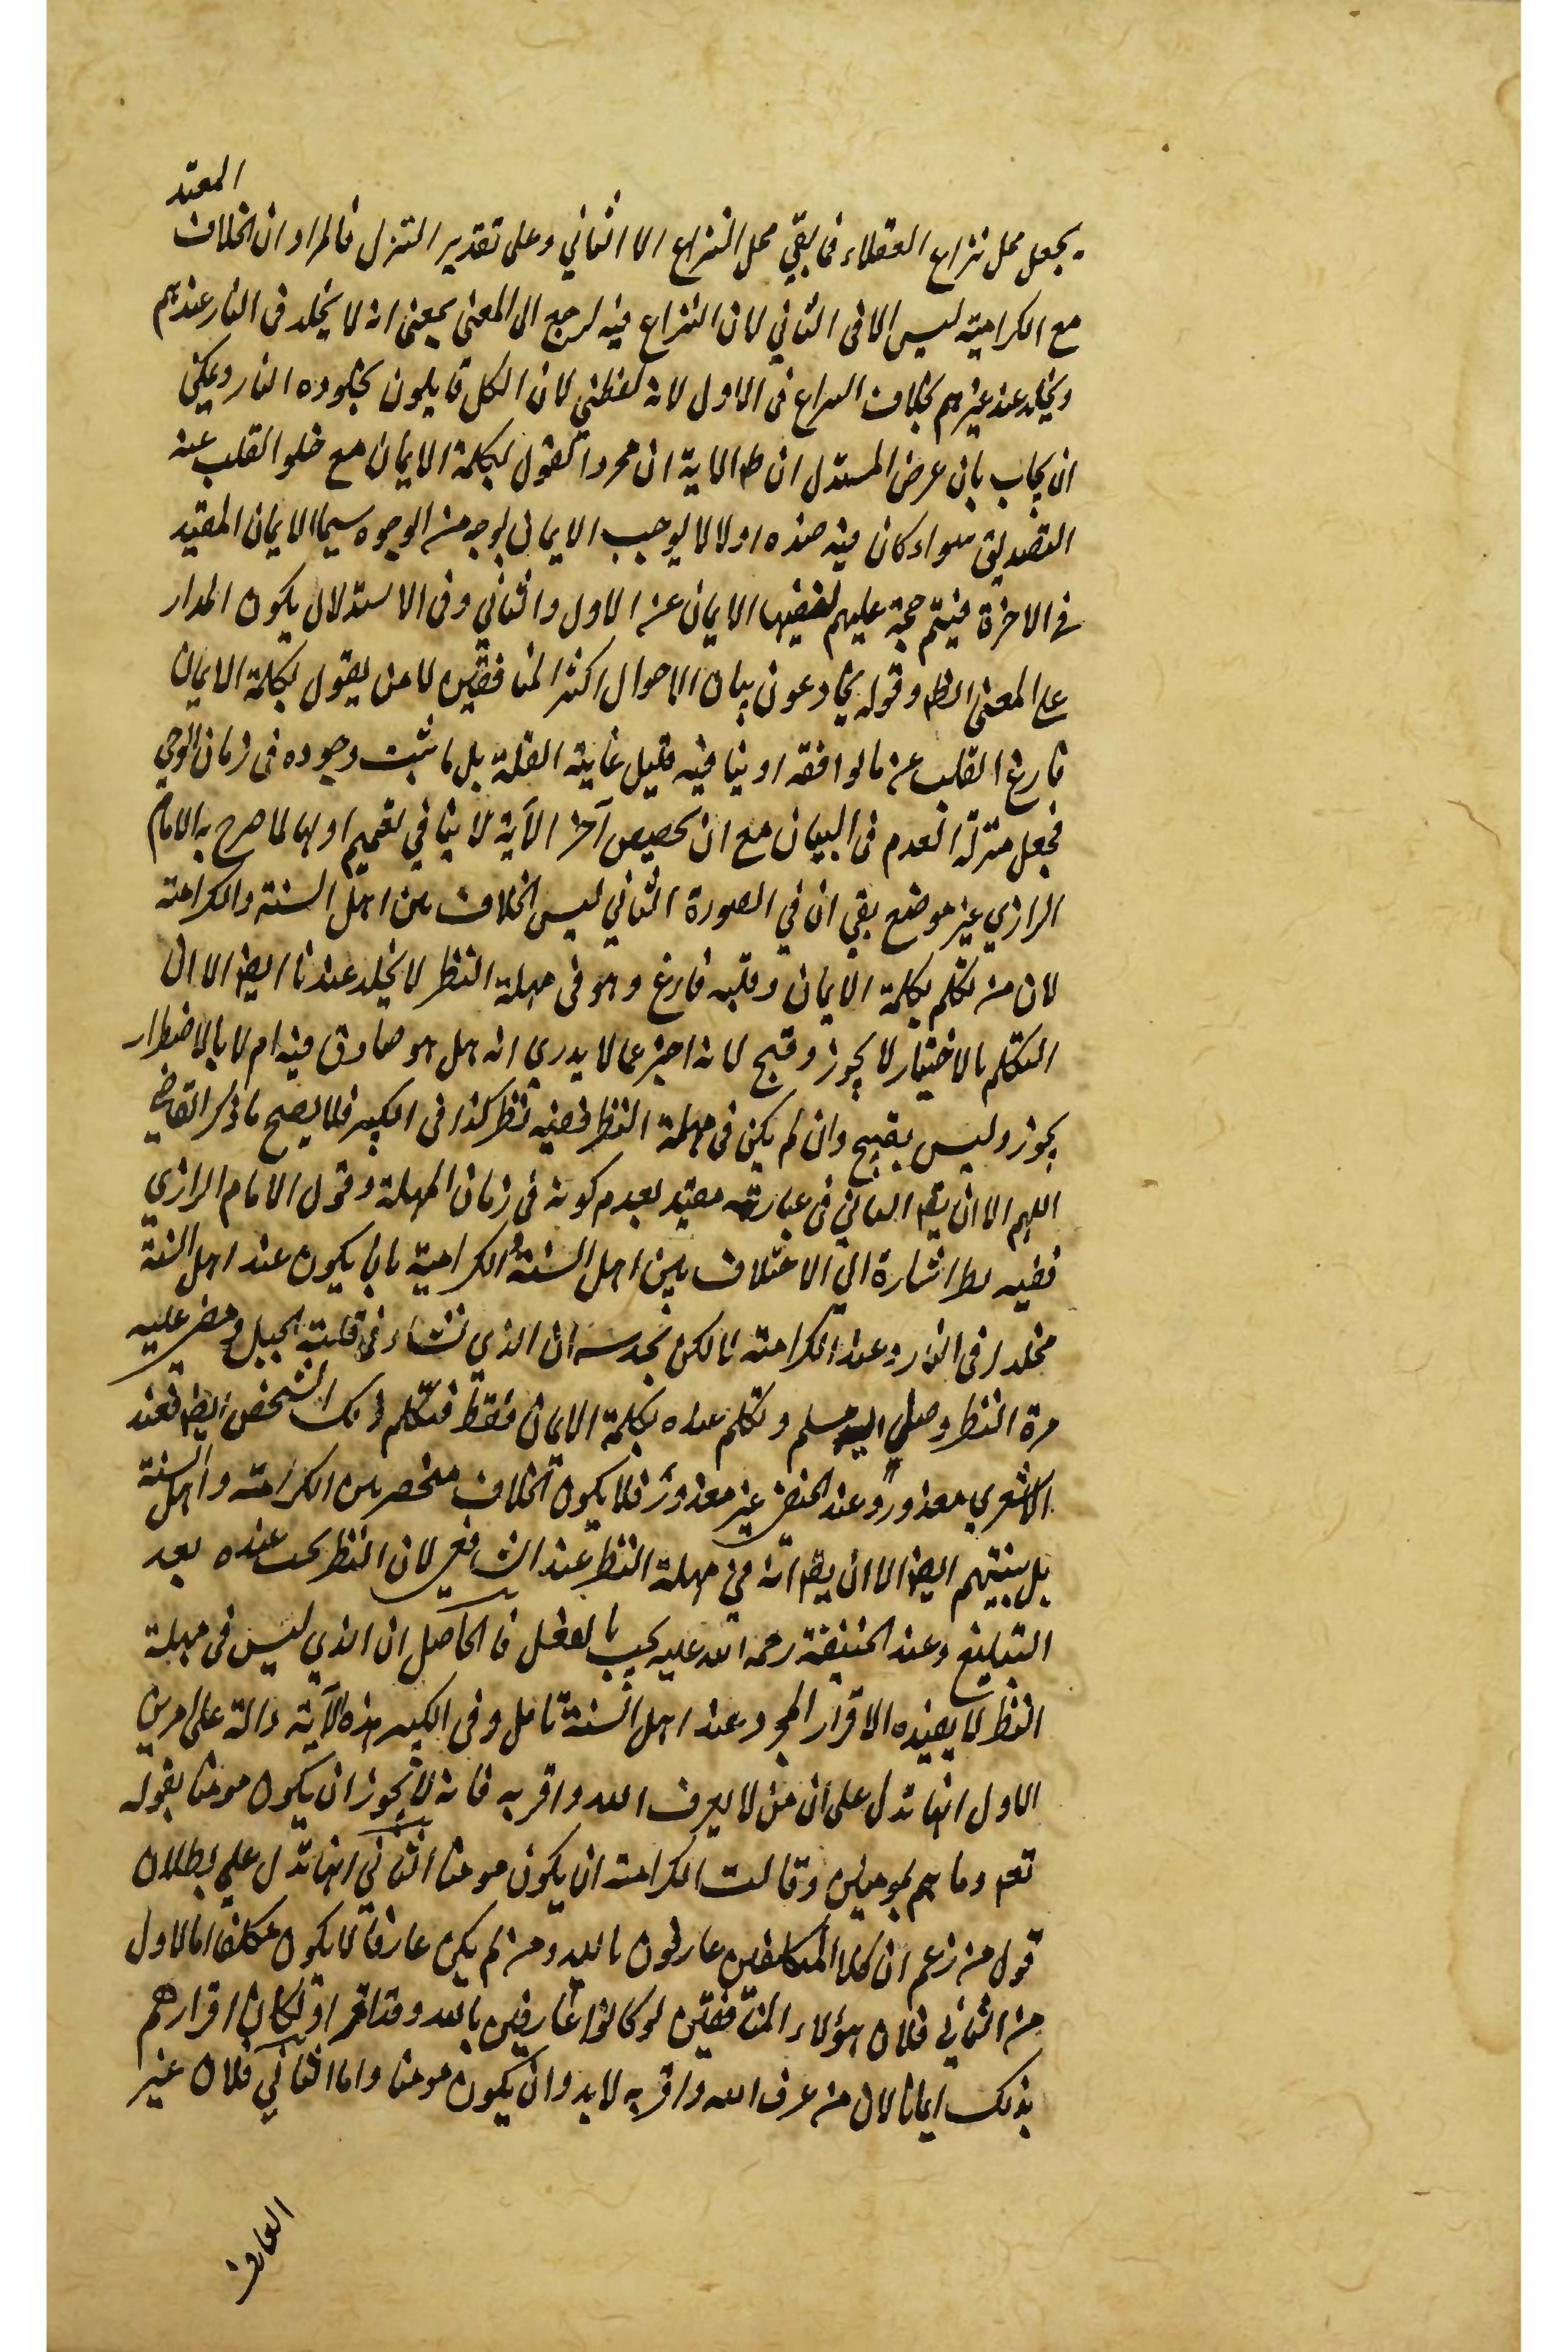 يجعل محل نزاع العقلاء فما بقي محل النزاع الا الثاني وعلى تقدير التنزل فالمراد ان الخلاف المعتد
مع الكرامية ليس الا فى الثاني لان النزاع فيه يرجع الى المعنى بمعنى انه لا يخلد فى النار عندهم
ويخلد عند غيرهم بخلاف النزاع فى الاول لانه لفظي لان الكل قايلون بخلوده النار ويمكن
ان يجاب بان غرض المستدل ان ظ الاية ان مجرد القول بكلمة الايمان مع خلو القلب عنه
التصديق سواء كان فيه ضده او لا لا يوجب الايمان بوجه من الوجوه سيما الايمان المقيد
في الاخرة فيتم حجة عليهم لنفيها الايمان عن الاول والثاني وفى الاستدلال يكون المدار
على المعنى الظ وقوله يخادعون بيان لاحوال اكثر المنافقين لا من يقول بكلمة الايمان
فارغ القلب عن ما يوافقه او ينافيه قليل غاية القلة بل ما ثبت وجوده فى زمان الوحي
فجعل منزلة العدم فى البيان مع ان تخصيص آخر الآية لا ينافي تعميم اولها لما صرح به الامام
الرازي غير موضع بقي ان في الصورة الثاني ليس الخلاف بين اهل السنة والكرامية
لان من تكلم بكلمة الايمان وقلبه فارغ وهو فى مهلة النظر لا يخلد عندنا ايض الا ان
التكلم بالاختيار لا يجوز وقبح لانه اخبر عما لا يدري انه هل هو صادق فيه ام لا بالاضطرار
يجوز وليس بقبيح وان لم يكن فى مهلة النظر ففيه نظر كذا فى الكبير فلا يصح ما ذكر القاضي
اللهم الا ان يق الثاني فى عبارته مقيد بعدم كونه فى زمان المهلة وقول الامام الرازي
ففيه نظر اشارة الى الاختلاف بين اهل السنة والكرامية بان يكون عند اهل السنة
مخلدا فى النار وعند الكرامية لا لكن نجد ان الذي نشاء فى قلة الجبل ومضى عليه
مدة النظر وصل اليه مسلم وتكلم عنده بكلمة الايمان فقط فتكلم ذلك الشخص ايض فعند
الاشعري معذور وعند الحنفي غير معذور فلا يكون الخلاف منحصر بين الكرامية واهل السنة
بل بينهم ايض الا ان يق انه في مهلة النظر عند الشافعي لان النظر يجب عنده بعد
التبليغ وعند الحنيفة رحمه الله عليه يجب بالعقل فالحاصل ان الذي ليس فى مهلة
النظر لا يفيده الاقرار المجرد عند اهل السنة تامل وفى الكبير هذه الآية دالة على امرين
الاول انها تدل على ان من لا يعرف الله واقر به فانه لا يجوز ان يكون مومنا بقوله
تعم وما هم بمومنين وقالت الكرامية ان يكون مومنا الثاني انها تدل علي بطلان
قول من زعم ان كل المكلفين عارفون بالله ومن لم يكن عارفا لا يكون مكلفا اما الاول
من الثاني فلان هؤلاء المنافقين لو كانوا عارفين بالله وقد اقروا لكان اقرارهم
بذلك ايمانا لان من عرف الله واقر به لا بد وان يكون مومنا واما الثاني فلان غير
العارف